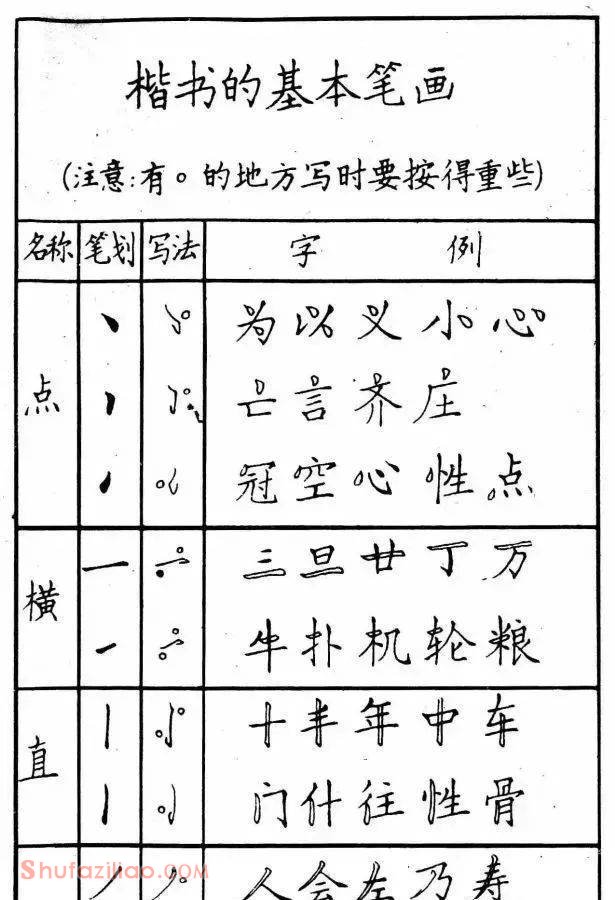 楷书的基本笔画
(注意:有。的地方写时要按得重些)
名称 笔划 写法 字例
为以义小心
点 亡言齐庄
冠空心性点
三旦廿丁万
横 牛扑机轮粮
十丰年中车
直 门什往性骨
人会左乃寿
Shufaziliao.COM